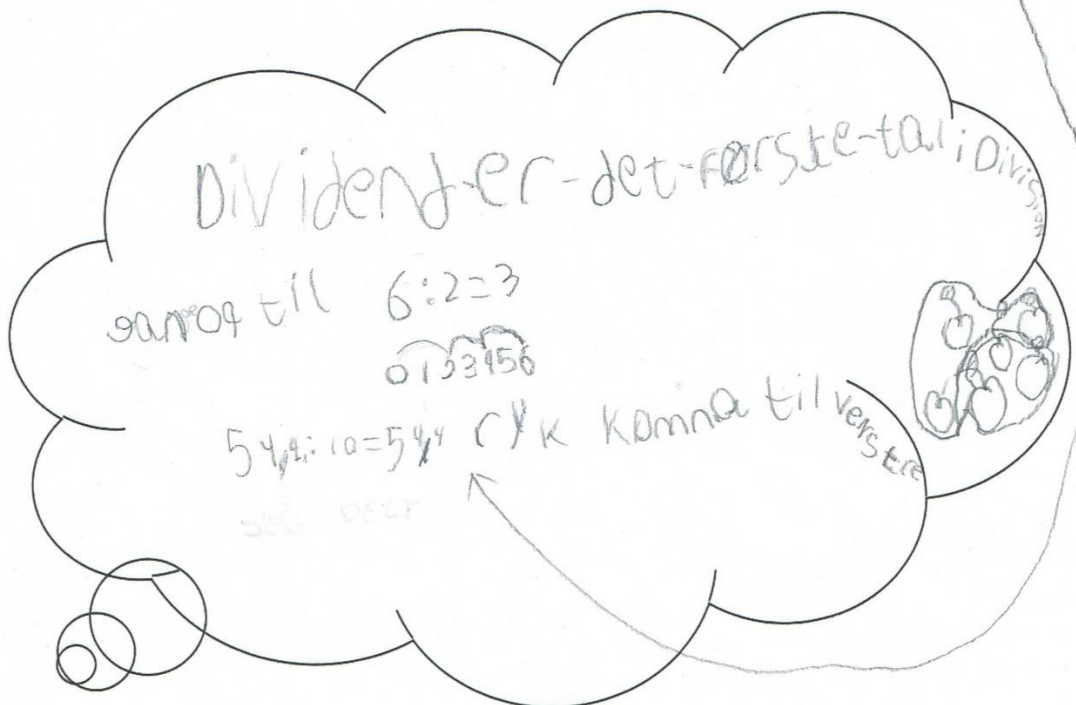 Dividend-er-det-første-tal i Division
til 6:2=3
0123456
ryk komma til venstre